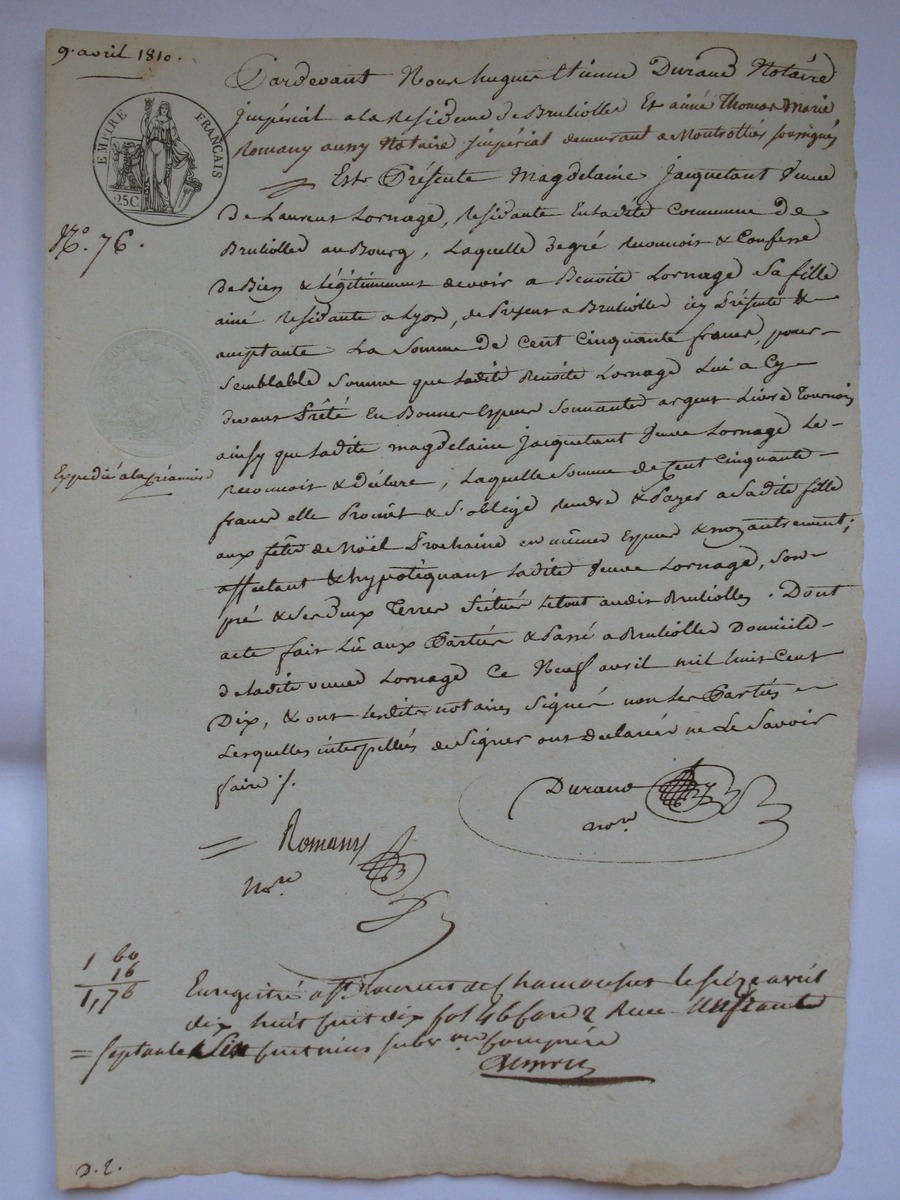 9. avril 1810.
Pardevant Nous hugues Etienne Durand Notaire
impérial a la Residence de Brulliolles Et aimé Thomas Marie
Romany aussy Notaire impérial demeurant a Montrottier soussignés
EMPIRE FRANÇAIS
25C.
Est Présente Magdelaine Jacquetant veuve
De Laurent Lornage, Residante En ladite Commune De
N.º 76.
Brulliolles au Bourg, Laquelle degré reconnoit & Confesse
De Bien & Légitimement devoir a Benoite Lornage Sa fille
ainé residante a Lyon, de Present a Brulliolles icy Présente &
acceptante La Somme De Cent Cinquante francs, pour
Semblable Somme que ladite Benoite Lornage Lui a Cy
devant Prêté En Bonnes Especes Sonnantes argent Livre Tournois
ainsy que Ladite magdelaine Jacquetant veuve Lornage Le
Expedié a la Créancière
reconnoit & déclare ; Laquelle Somme de Cent Cinquante
francs elle Promet & S'oblige Rendre & Payer a Sadite fille
aux fêtes de Noël Prochaine en mêmes Especes & non autrement ;
affectant & hypotéquant Ladite veuve Lornage, Son
pré & Ses deux Terres Situés le tout audit Brulliolles. Dont
acte fait Lu aux Parties & Passé a Brulliolles Domicile
de ladite veuve Lornage Ce Neuf avril mil huit Cent
Dix, & ont lesdits notaires Signés non les Parties
Lesquelles interpellés de Signer ont déclarées ne Le Savoir
faire ./.
Durand
no.re
= Romany
No.re
1 60
16
1,76
Enregistré a St. Laurent de Chamousset le seize avril
dix huit cent dix fol 46 case 2 Recu un franc
= septante Six centimes subv.on comprise
D. 2.